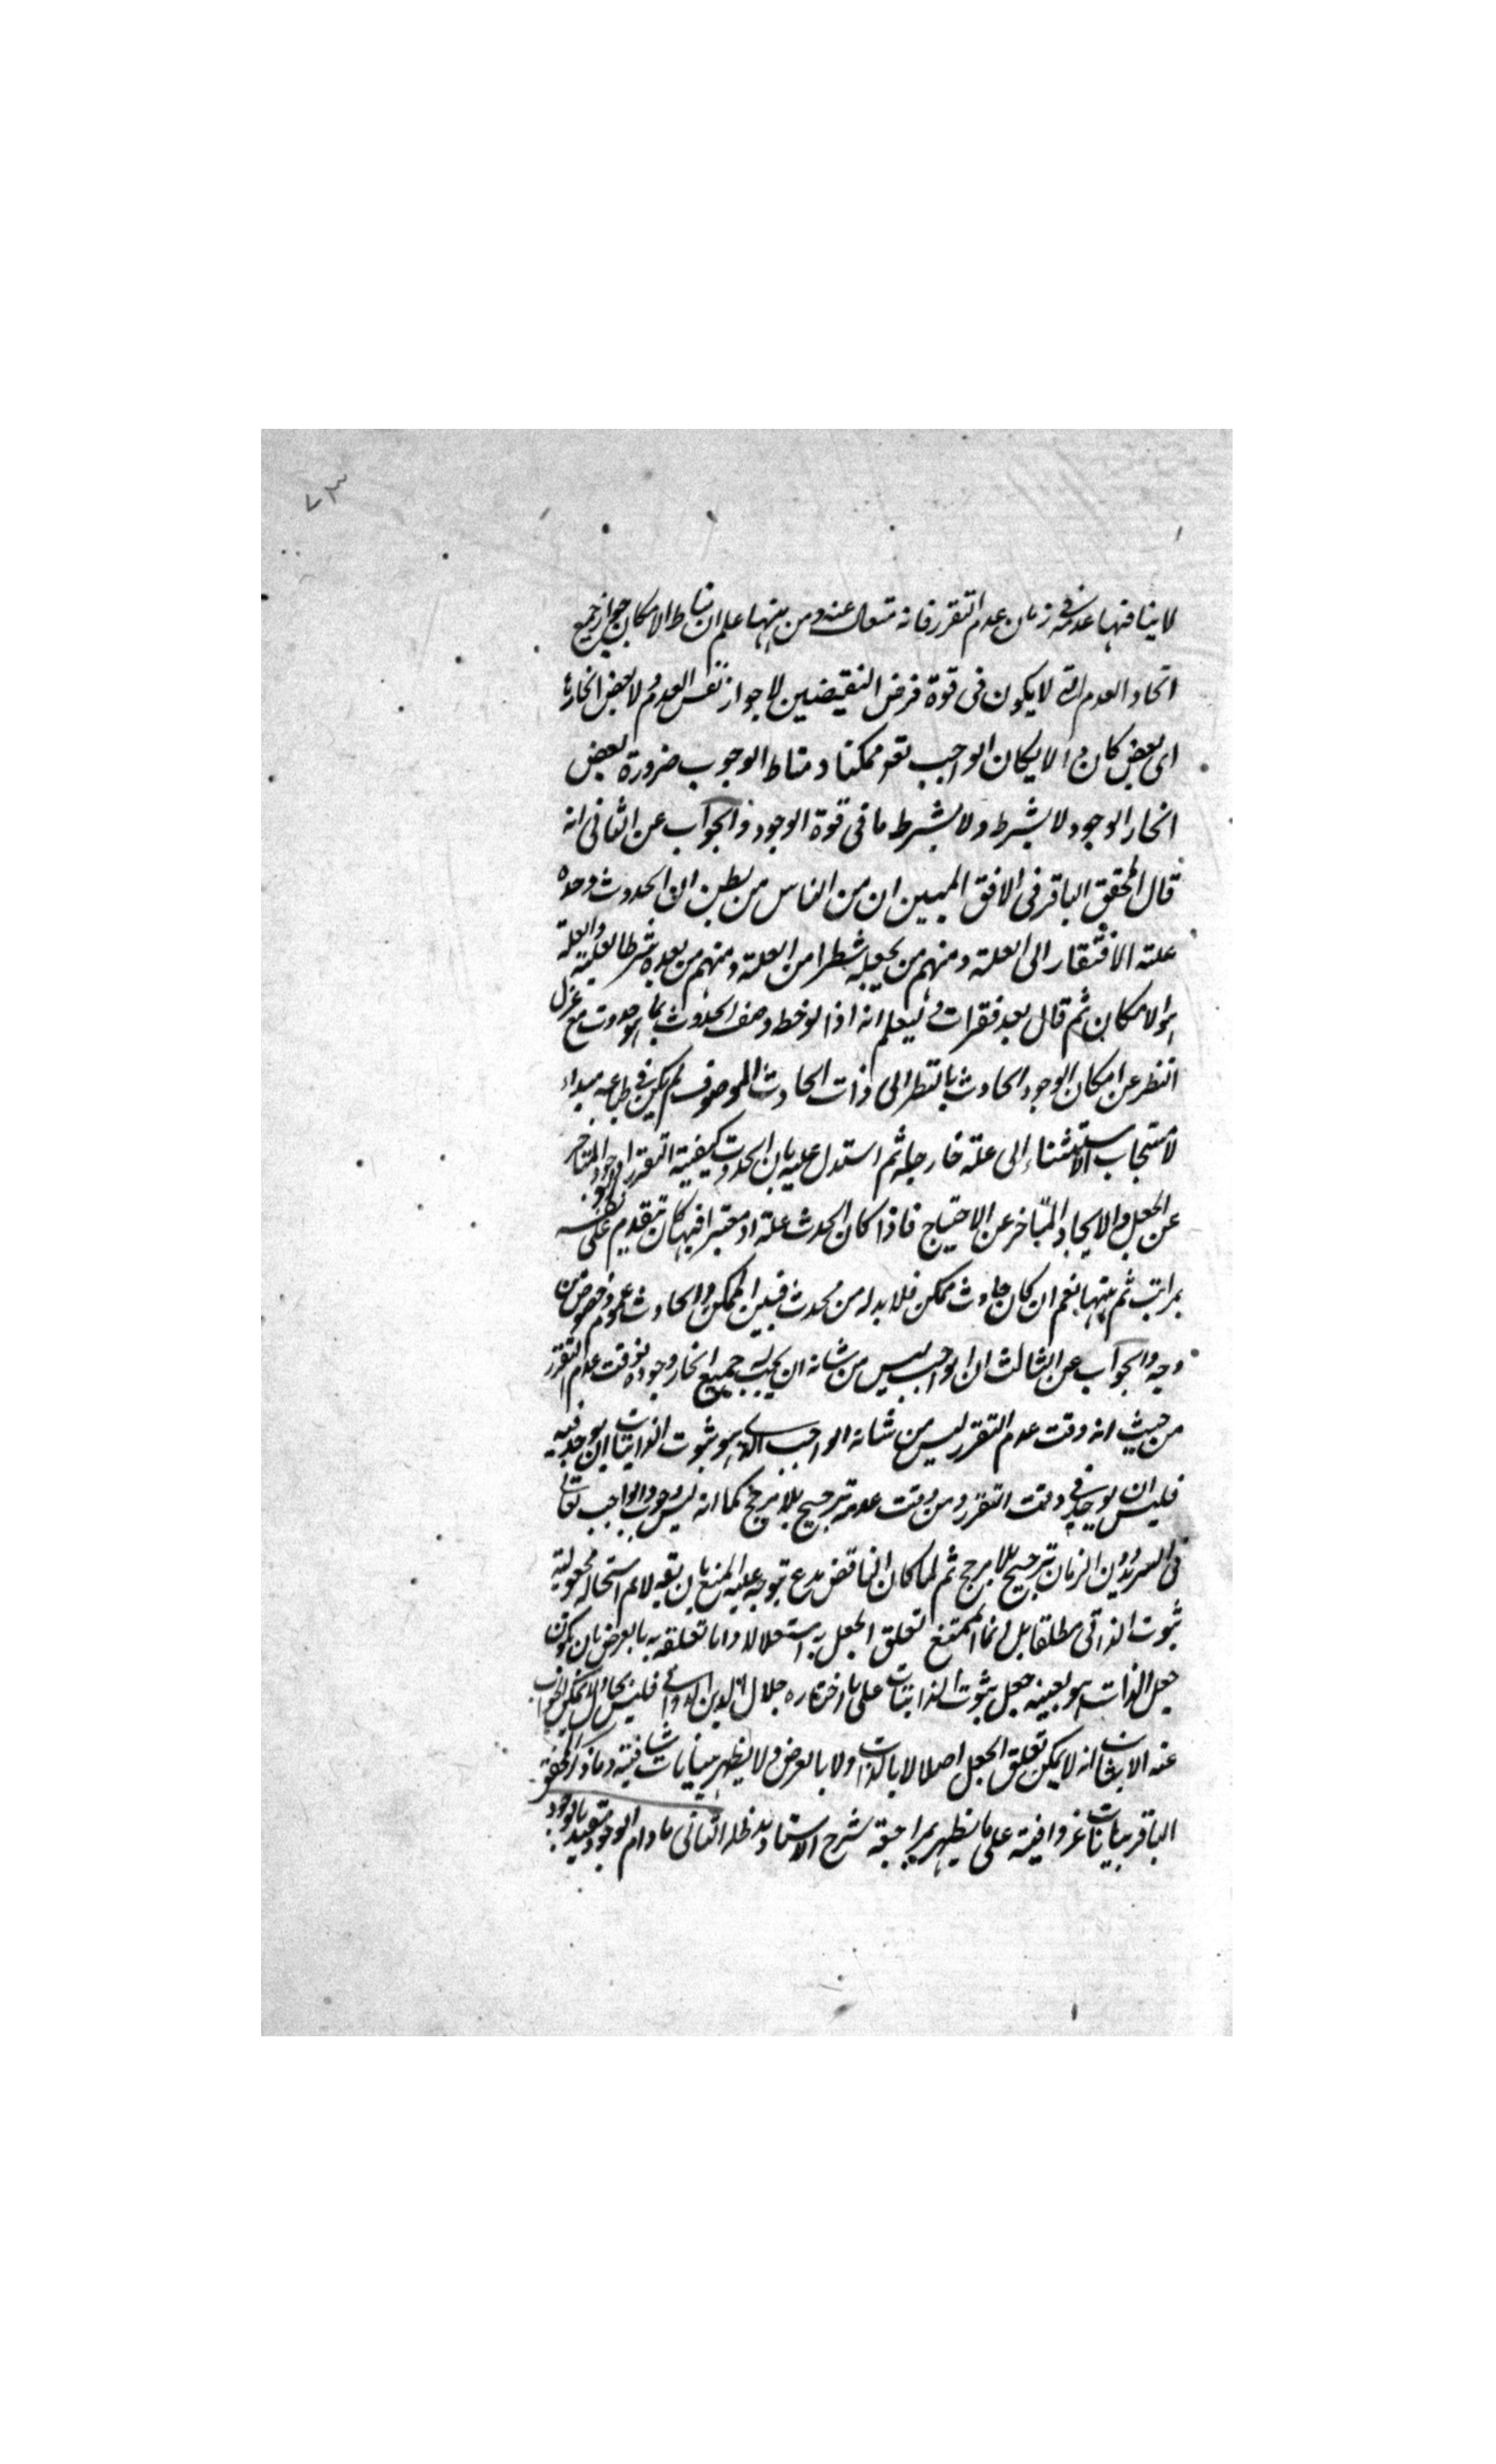 ٧٣
لا ينافيها عدمه في زمان عدم التقرر فانه متعال عنه ومن ههنا علم ان مناط الامكان جواز جميع
انحاء العدم التي لا يكون في قوة فرض النقيضين لا جواز نفس العدم ولا بعض انحائه
اي بعض كان والا لكان الواجب تع ممكنا ومناط الوجوب ضرورة بعض
انحاء الوجود لا بشرط ولا بشرط ما في قوة الوجود والجواب عن الثاني انه
قال المحقق الباقر في الافق المبين ان من الناس من يظن ان الحدوث وحده
علة الافتقار الى العلة ومنهم من يجعله شطرا من العلة ومنهم من يعده شرطا لعلية والعلة
هو الامكان ثم قال بعد فقرات وليعلم انه اذا لوحظ وصف الحدوث بما هو حدوث مع عزل
النظر عن امكان الوجود الحادث بالنظر الى ذات الحادث الموصوف لم يكن في طباعه مبداء
لاستيجاب الاستناد الى علة خارجة ثم استدل عليه بان الحدوث كيفية التقرر او الوجود المتاخر
عن الجعل والايجاد المتاخر عن الاحتياج فاذا كان الحدث علة او معتبرا فيها كان تتقدم على نفسه
بمراتب ثم ههنا نعم ان كان حادث ممكن فلا بد له من محدث فبين الممكن والحادث عموم وخصوص من
وجه والجواب عن الثالث ان الواجب ليس من شانه ان يجب له جميع انحاء وجوده فوقت عدم التقرر
من حيث انه وقت عدم التقرر ليس من شانه الواجب الذي هو ثبوت الذاتيات ان يوجد فيه
فليس ان يوجد في وقت التقرر ومن وقت عدمه ترجيح بلا مرجح كما انه ليس وجود الواجب تعالى
في السرمد دون الزمان ترجيح بلا مرجح ثم لما كان الناقض مدع توجه عليه المنع بان يقو لا نم استحالة مجعولية
ثبوت الذاتي مطلقا بل انما الممتنع تعلق الجعل به استقلالا واما تعلقه به بالعرض بان يكون
جعل الذات هو بعينه جعل ثبوت الذاتيات على ما اختاره جلال الدين الدواني فليس بمحال ولا يمكن الجواب
عنه الا باثبات انه لا يمكن تعلق الجعل اصلا لا بالذات ولا بالعرض ولا يظهر ببيانات شافية وما ذكر المحقق
الباقر بيانات غير وافية على ما يظهر بمراجعة شرح الاستاد مد ظله الثاني ما دام الوجود مقيد بالوجود